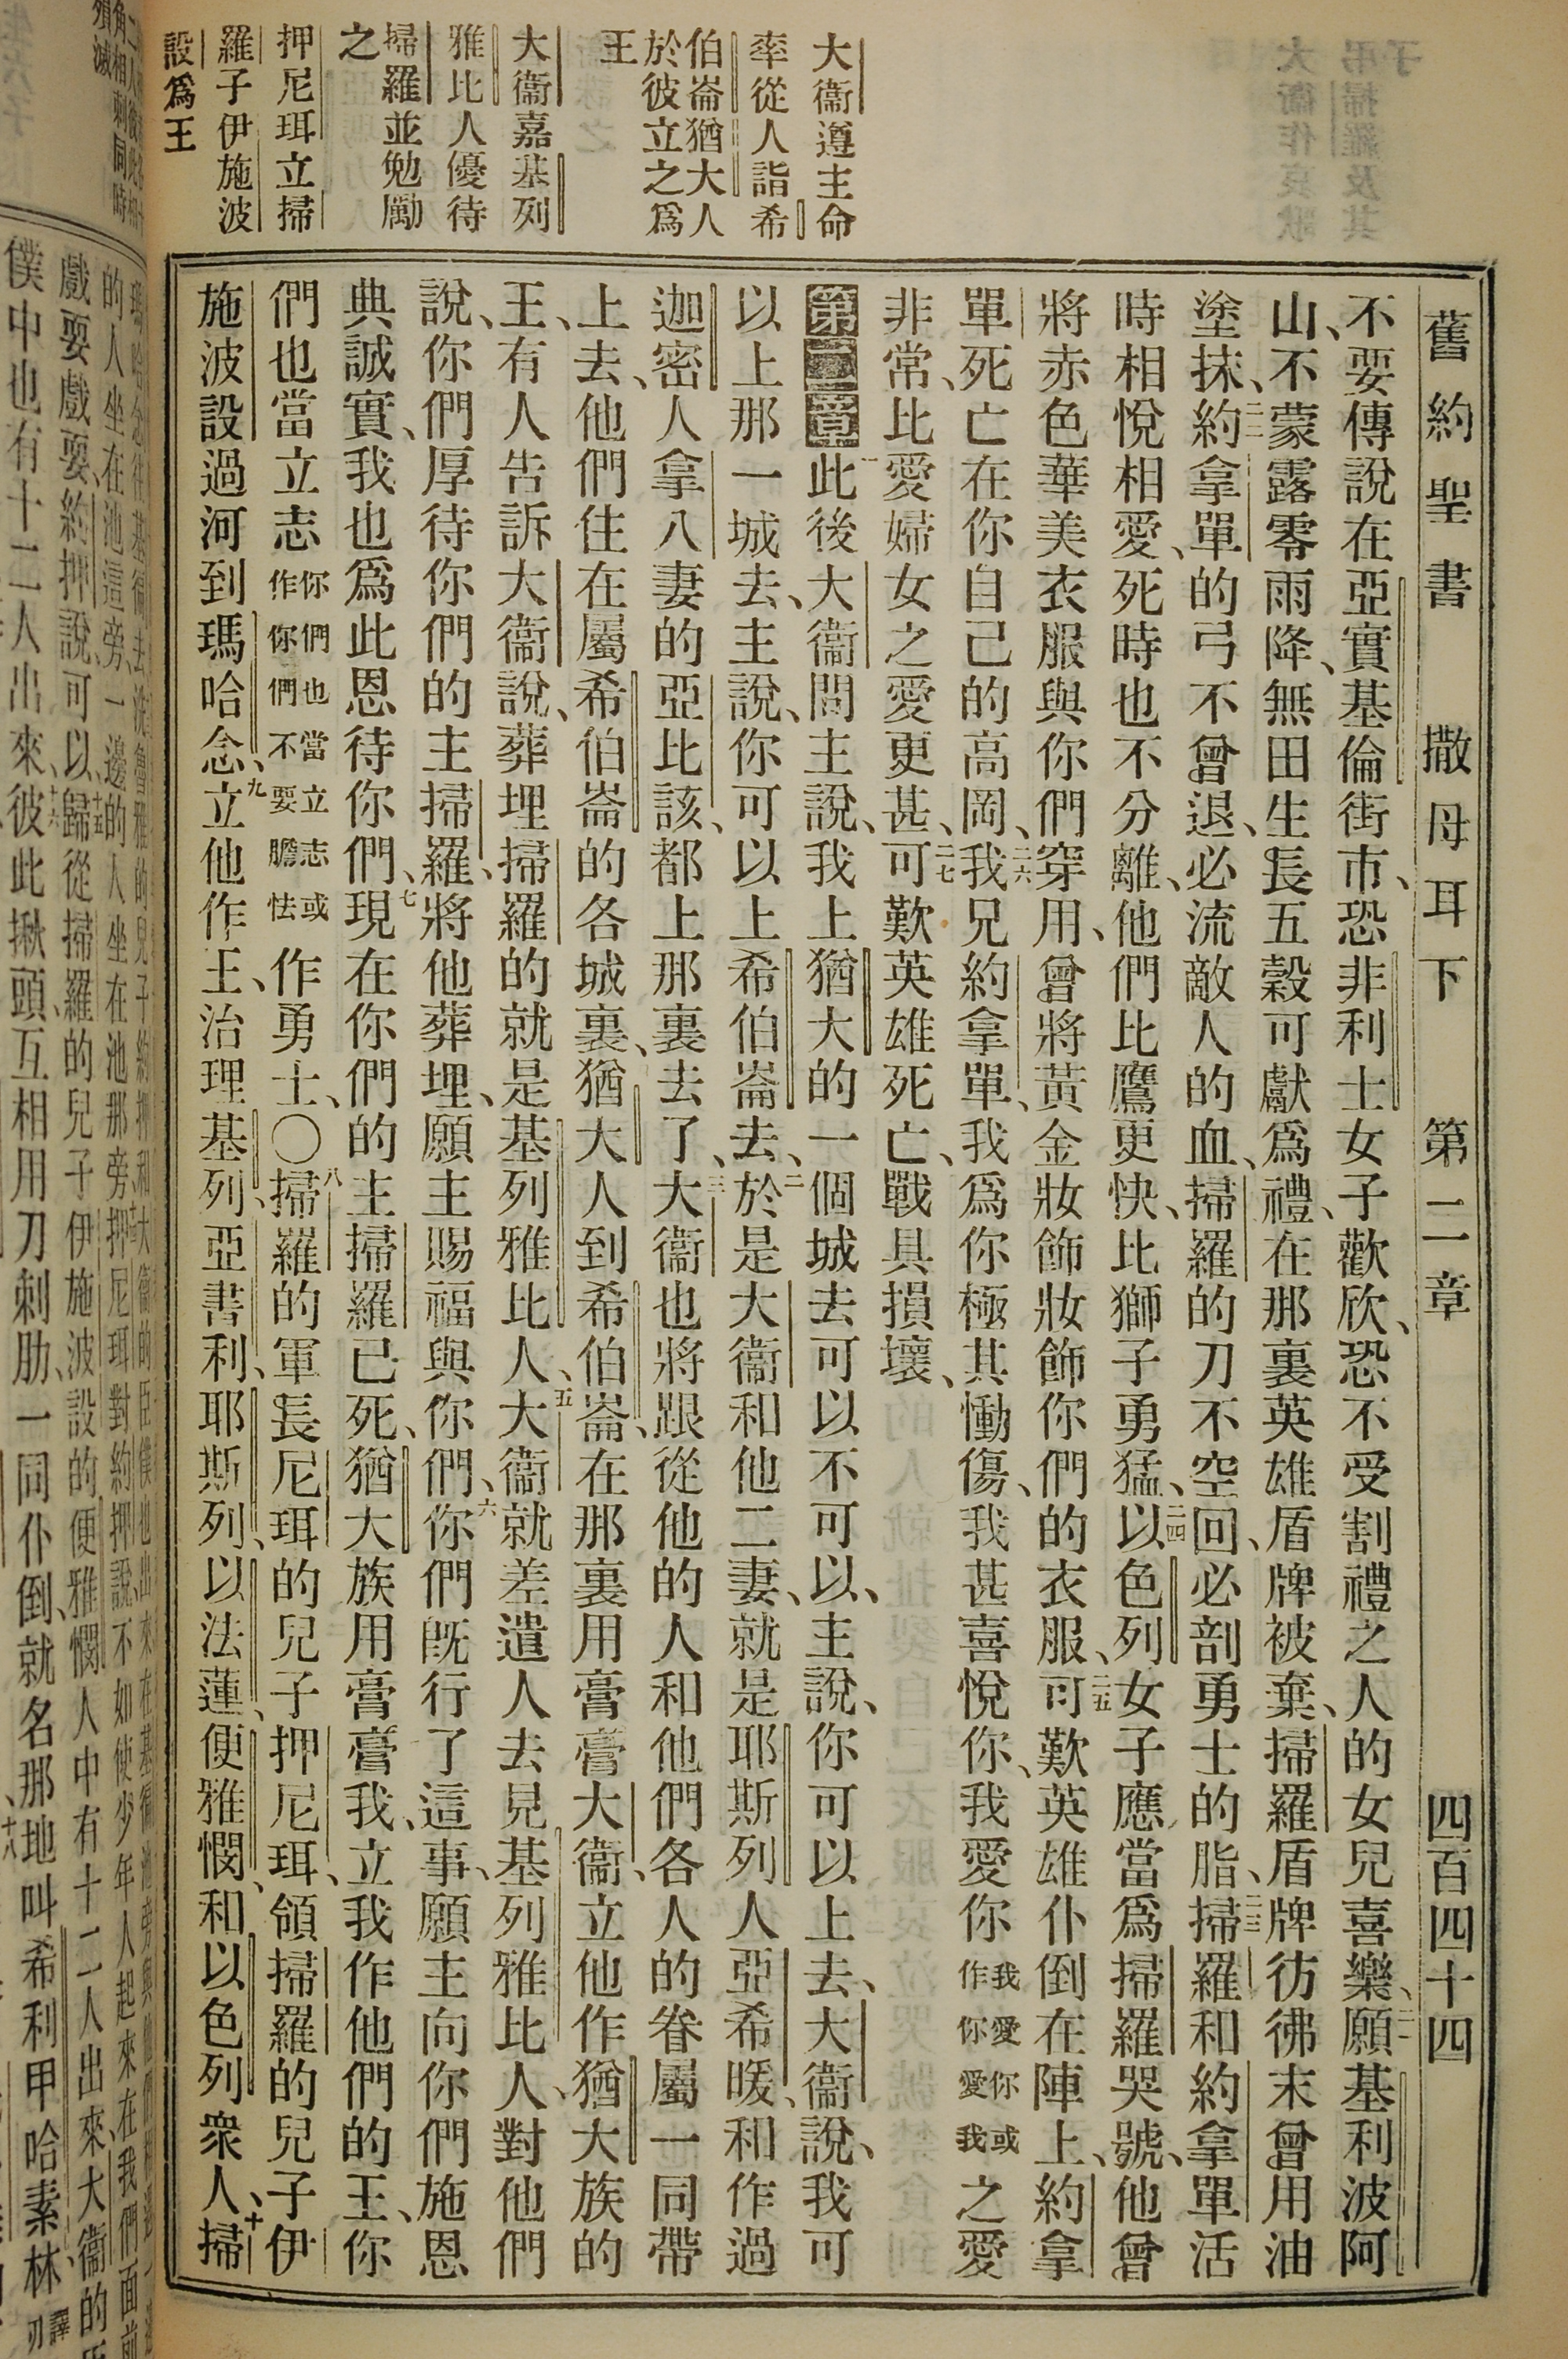 舊約聖書 撒母耳下 第二章 四百四十四
大衞遵主命
率從人詣希
伯崙猶大人
於彼立之爲
王
大衞嘉基列
雅比人優待
掃羅並勉勵
之
押尼珥立掃
羅子伊施波
設爲王
不要傳說在亞實基倫街市、恐非利士女子歡欣、恐不受割禮之人的女兒喜樂、二一願基利波阿
山、不蒙露零雨降、無田生長五穀可獻爲禮、在那裏英雄盾牌被棄、掃羅盾牌彷彿未曾用油
塗抹、二二約拿單的弓不曾退、必流敵人的血、掃羅的刀不空回、必剖勇士的脂、二三掃羅和約拿單活
時相悅相愛、死時也不分離、他們比鷹更快、比獅子勇猛、二四以色列女子應當爲掃羅哭號、他曾
將赤色華美衣服與你們穿用、曾將黃金妝飾妝飾你們的衣服、二五可歎英雄仆倒在陣上、約拿
單死亡在你自己的高岡、二六我兄約拿單、我爲你極其慟傷、我甚喜悅你、我愛你我愛你或作你愛我之愛
非常、比愛婦女之愛更甚、二七可歎英雄死亡、戰具損壞、
第二章一此後大衞問主說、我上猶大的一個城去可以不可以、主說、你可以上去、大衞說、我可
以上那一城去、主說、你可以上希伯崙去、二於是大衞和他二妻、就是耶斯列人亞希暖、和作過
迦密人拿八妻的亞比該、都上那裏去了、三大衞也將跟從他的人和他們各人的眷屬一同帶
上去、他們住在屬希伯崙的各城裏、猶大人到希伯崙、在那裏用膏膏大衞、立他作猶大族的
王、有人告訴大衞說、葬埋掃羅的就是基列雅比人、五大衞就差遣人去見基列雅比人、對他們
說、你們厚待你們的主掃羅、將他葬埋、願主賜福與你們、六你們旣行了這事、願主向你們施恩
典誠實、我也爲此恩待你們、七現在你們的主掃羅已死、猶大族用膏膏我、立我作他們的王、你
們也當立志你們也當立志或作你們不要膽怯作勇士、〇八掃羅的軍長尼珥的兒子押尼珥、領掃羅的兒子伊
施波設過河到瑪哈念、九立他作王、治理基列、亞書利、耶斯列、以法蓮、便雅憫、和以色列衆人、十掃
的人坐在池這旁一邊的人坐在池那旁、押尼珥對約押說、不如使少年人起來在我們面前
戲耍戲耍、約押說、可以、十五歸從掃羅的兒子伊施波設的便雅憫人中有十二人出來、大衞的
僕中也有十二人出來、十六彼此揪頭、互相用刀刺肋、一同仆倒、就名那地叫希利甲哈素林